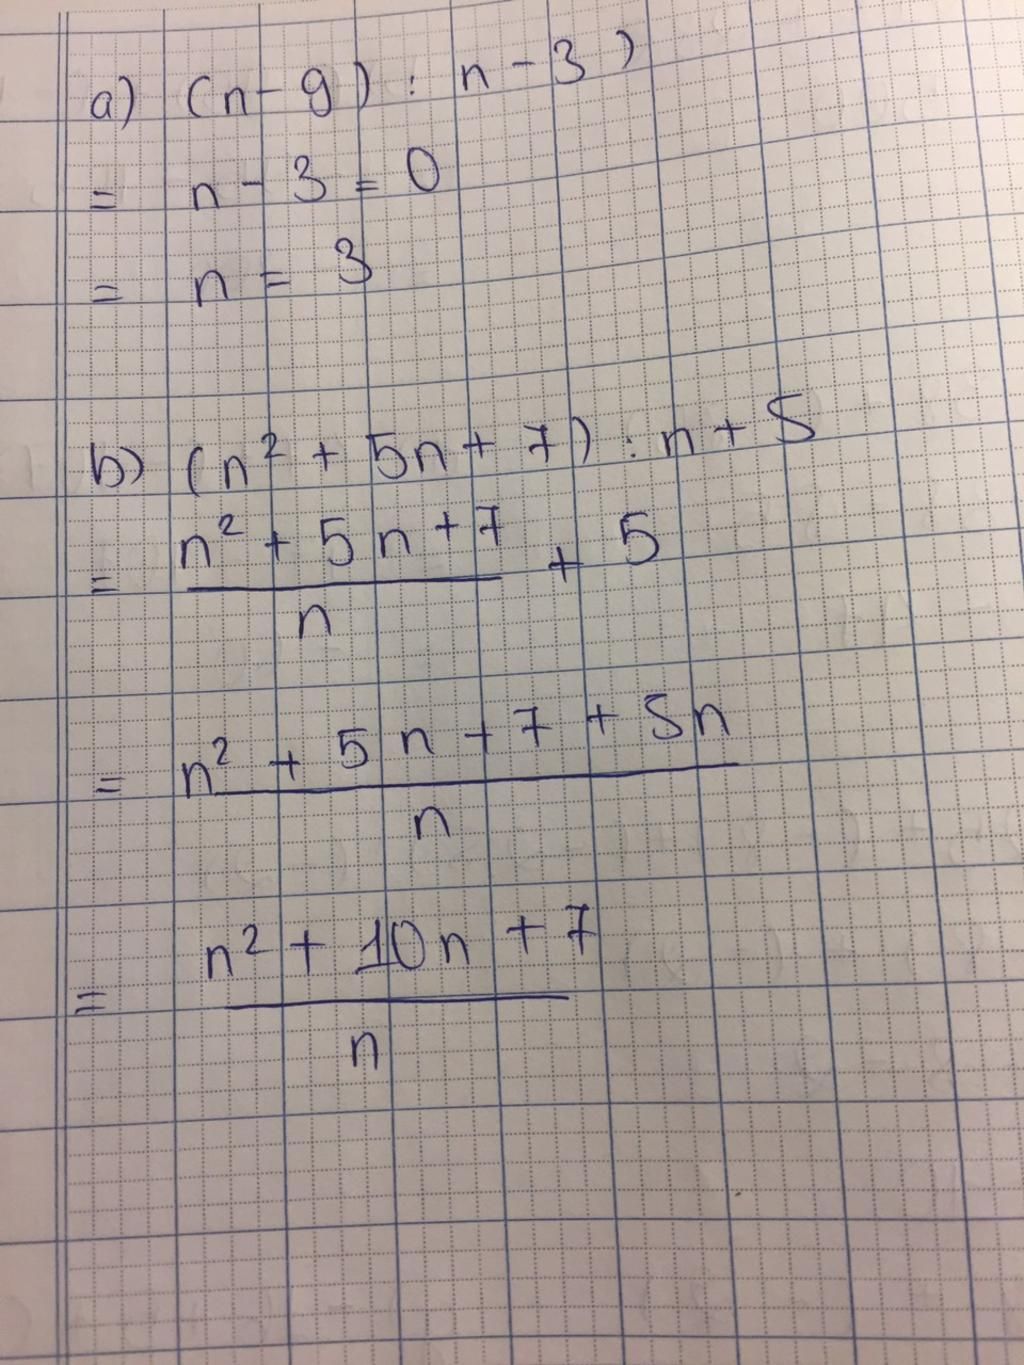 a) (n - 9) : n - 3)
= n - 3 = 0
= n = 3
b) (n² + 5n + 7) : n + 5
= \frac{n² + 5n + 7}{n} + 5
= \frac{n² + 5n + 7 + 5n}{n}
= \frac{n² + 10n + 7}{n}